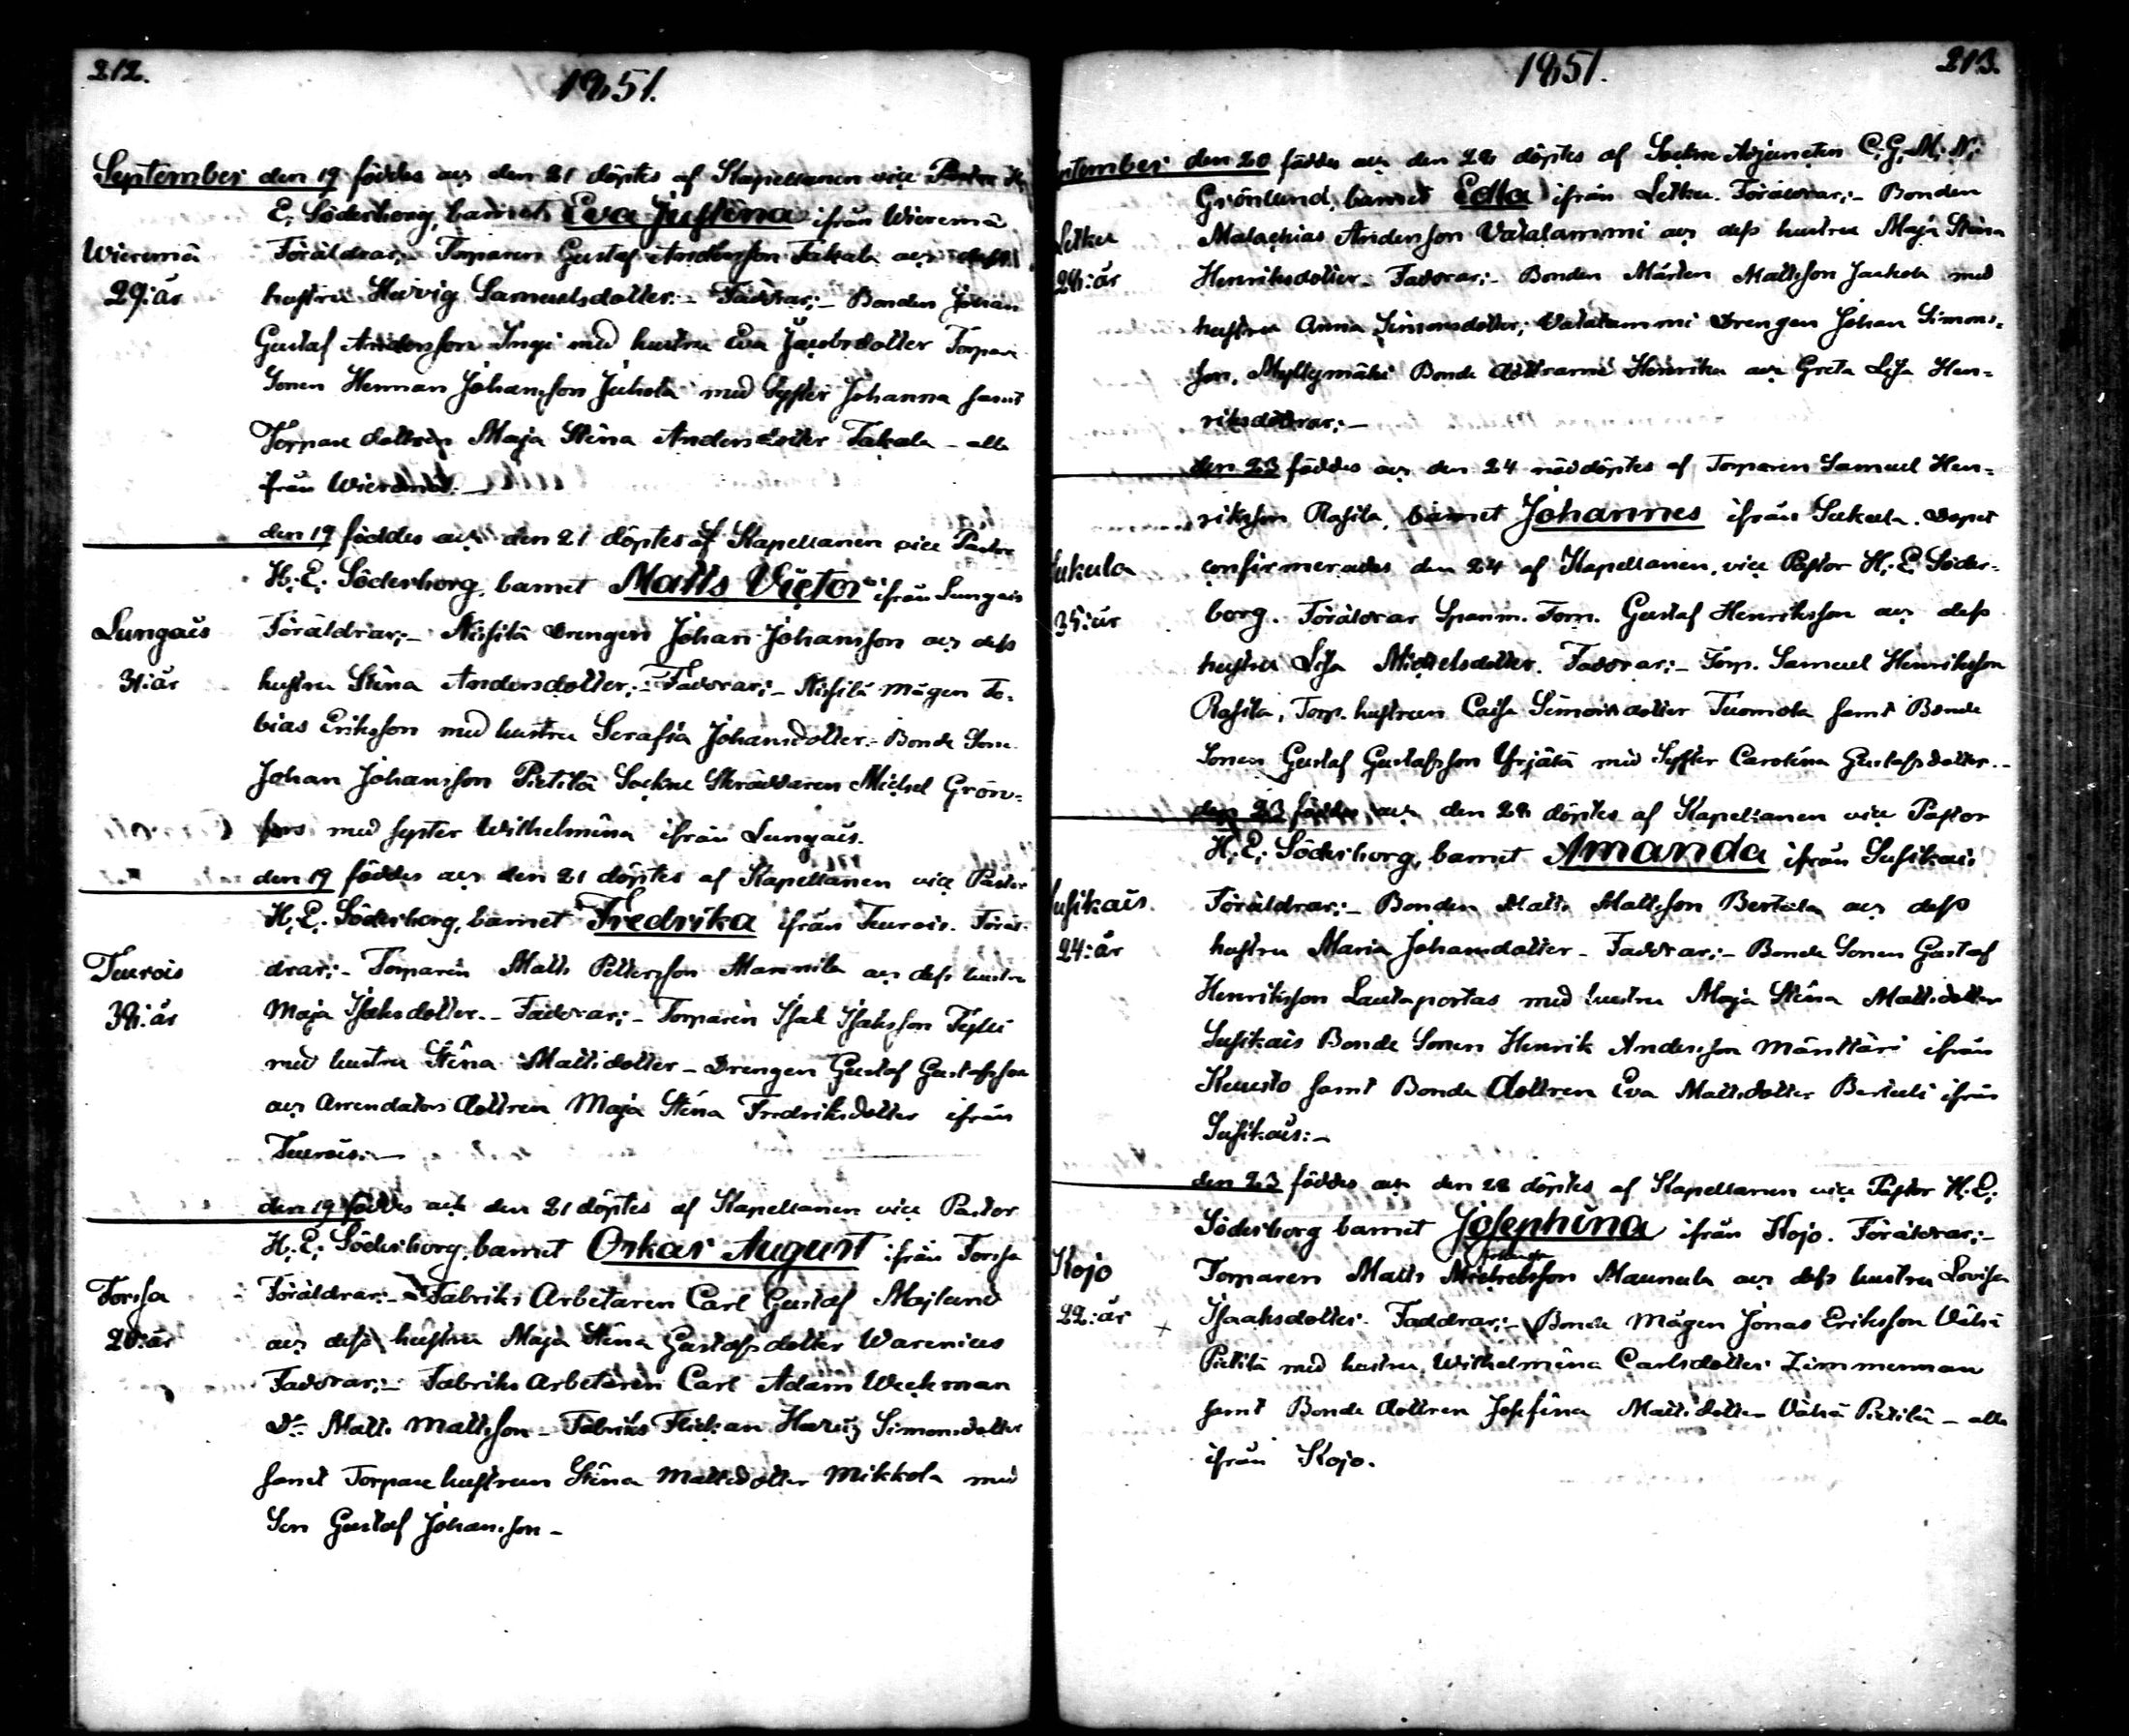 212.
1851.
September den 19 föddes och den 21 döptes af Kapellanen vice Pastor H.
E. Söderborg, barnet Eva Justina ifrån Wieremä
Wieremä Föräldrar;- Torparen Gustaf Andersson Takala och dess
29:år hustru Hedvig Samuelsdotter.- Faddrar;- Bonden Johan
Gustaf Andersson Ingi med hustru Eva Jacobsdotter Torpare
Sonen Herman Johansson Juhola med Syster Johanna samt
Torpare dottren Maja Stina Andersdotter Takala - alla
ifrån Wieremä.-
den 19 föddes och den 21 döptes af Kapellanen vice Pastor
H. E. Söderborg, barnet Matts Victor ifrån Lungais
Lungais Föräldrar;- Nissilä Drengen Johan Johansson och dess
31:år hustru Stina Andersdotter;- Faddrar;- Nissilä mågen To-
bias Eriksson med hustru Serafia Johansdotter.- Bonde Sone
Johan Johansson Pietilä Sockne Skräddaren Michel Grön-
fors med syster Wilhelmina ifrån Lungais.
den 19 föddes och den 21 döptes af Kapellanen vice Pastor
H. E. Söderborg, barnet Fredrika ifrån Teurois. Föräl-
Teurois drar;- Torparen Matts Pettersson Mannila och dess hustru
38:år Maja Isaksdotter.- Faddrar;- Torparen Isak Isaksson
med hustru Stina Mattsdotter - Drengen Gustaf Gustafsson
och Arrendators dottren Maja Stina Fredriksdotter ifrån
Teurois.-
den 19 föddes och den 21 döptes af Kapellanen vice Pastor
H. E. Söderborg, barnet Oskar August ifrån Forssa
Forssa Föräldrar;- Fabriks Arbetaren Carl Gustaf Majlund
20:år och dess hustru Maja Stina Gustafsdotter Warenius
Faddrar;- Fabriks Arbetaren Carl Adam Weckman
D:o Matts Mattsson - Fabriks Flickan Simonsdotter
samt Torpare hustrun Stina Mattsdotter Mikkola med
Son Gustaf Johansson -
1851.
213.
September den 20 föddes och den 28 döptes af Sockne Adjuncten C. G. M. N.
Grönlund, barnet Edla ifrån Letku. Föräldrar;- Bonden
Letku Malachias Andersson Vatalammi och dess hustru Maja Stina
28:år Henriksdotter - Faddrar;- Bonden Mårten Mattsson Jaakola med
hustru Anna Simonsdotter; Vatalammi Drengen Johan Simons-
son, Myllymäki Bonde döttrarne Henrika och Greta Lisa Hen-
riksdöttrar;-
den 23 föddes och den 24 nöddöptes af Torparen Samuel Hen-
riksson Rasila, barnet Johannes ifrån Sukula. Dopet
Sukula confirmerades den 24 af Kapellanen, vice Pastor H. E. Söder-
35:år borg. Föräldrar Spanm. Torp. Gustaf Henriksson och dess
hustru Lisa Michelsdotter. Faddrar;- Torp. Samuel Henriksson
Rasila, Torp. hustrun Caisa Simonsdotter Tuomola samt Bonde
Sonen Gustaf Gustafsson Yrjälä med Syster Carolina Gustafsdotter.-
den 23 föddes och den 28 döptes af Kapellanen vice Pastor
H. E. Söderborg, barnet Amanda ifrån Susikais
Susikais Föräldrar;- Bonden Matts Mattsson Bertula och dess
24:år hustru Maria Johansdotter - Faddrar;- Bonde Sonen Gustaf
Henriksson Lautaportas med hustru Maja Stina Mattsdotter
Susikais Bonde Sonen Henrik Andersson Mänttäri ifrån
Kuusto samt Bonde dottren Eva Mattsdotter Bertula ifrån
Susikais:-
den 23 föddes och den 28 döptes af Kapellanen vice Pastor H. E.
Söderborg barnet Josephina ifrån Kojo. Föräldrar;-
Kojo Torparen Matts Michelsson Maunula och dess hustru Lovisa
22:år + Isaaksdotter. Faddrar;- Bonde Mågen Jonas Eriksson Vähä
Pietilä med hustru Wilhelmina Carlsdotter Zimmerman
samt Bonde dottren Josefina Mattsdotter Vähä Pietilä - alla
ifrån Kojo.